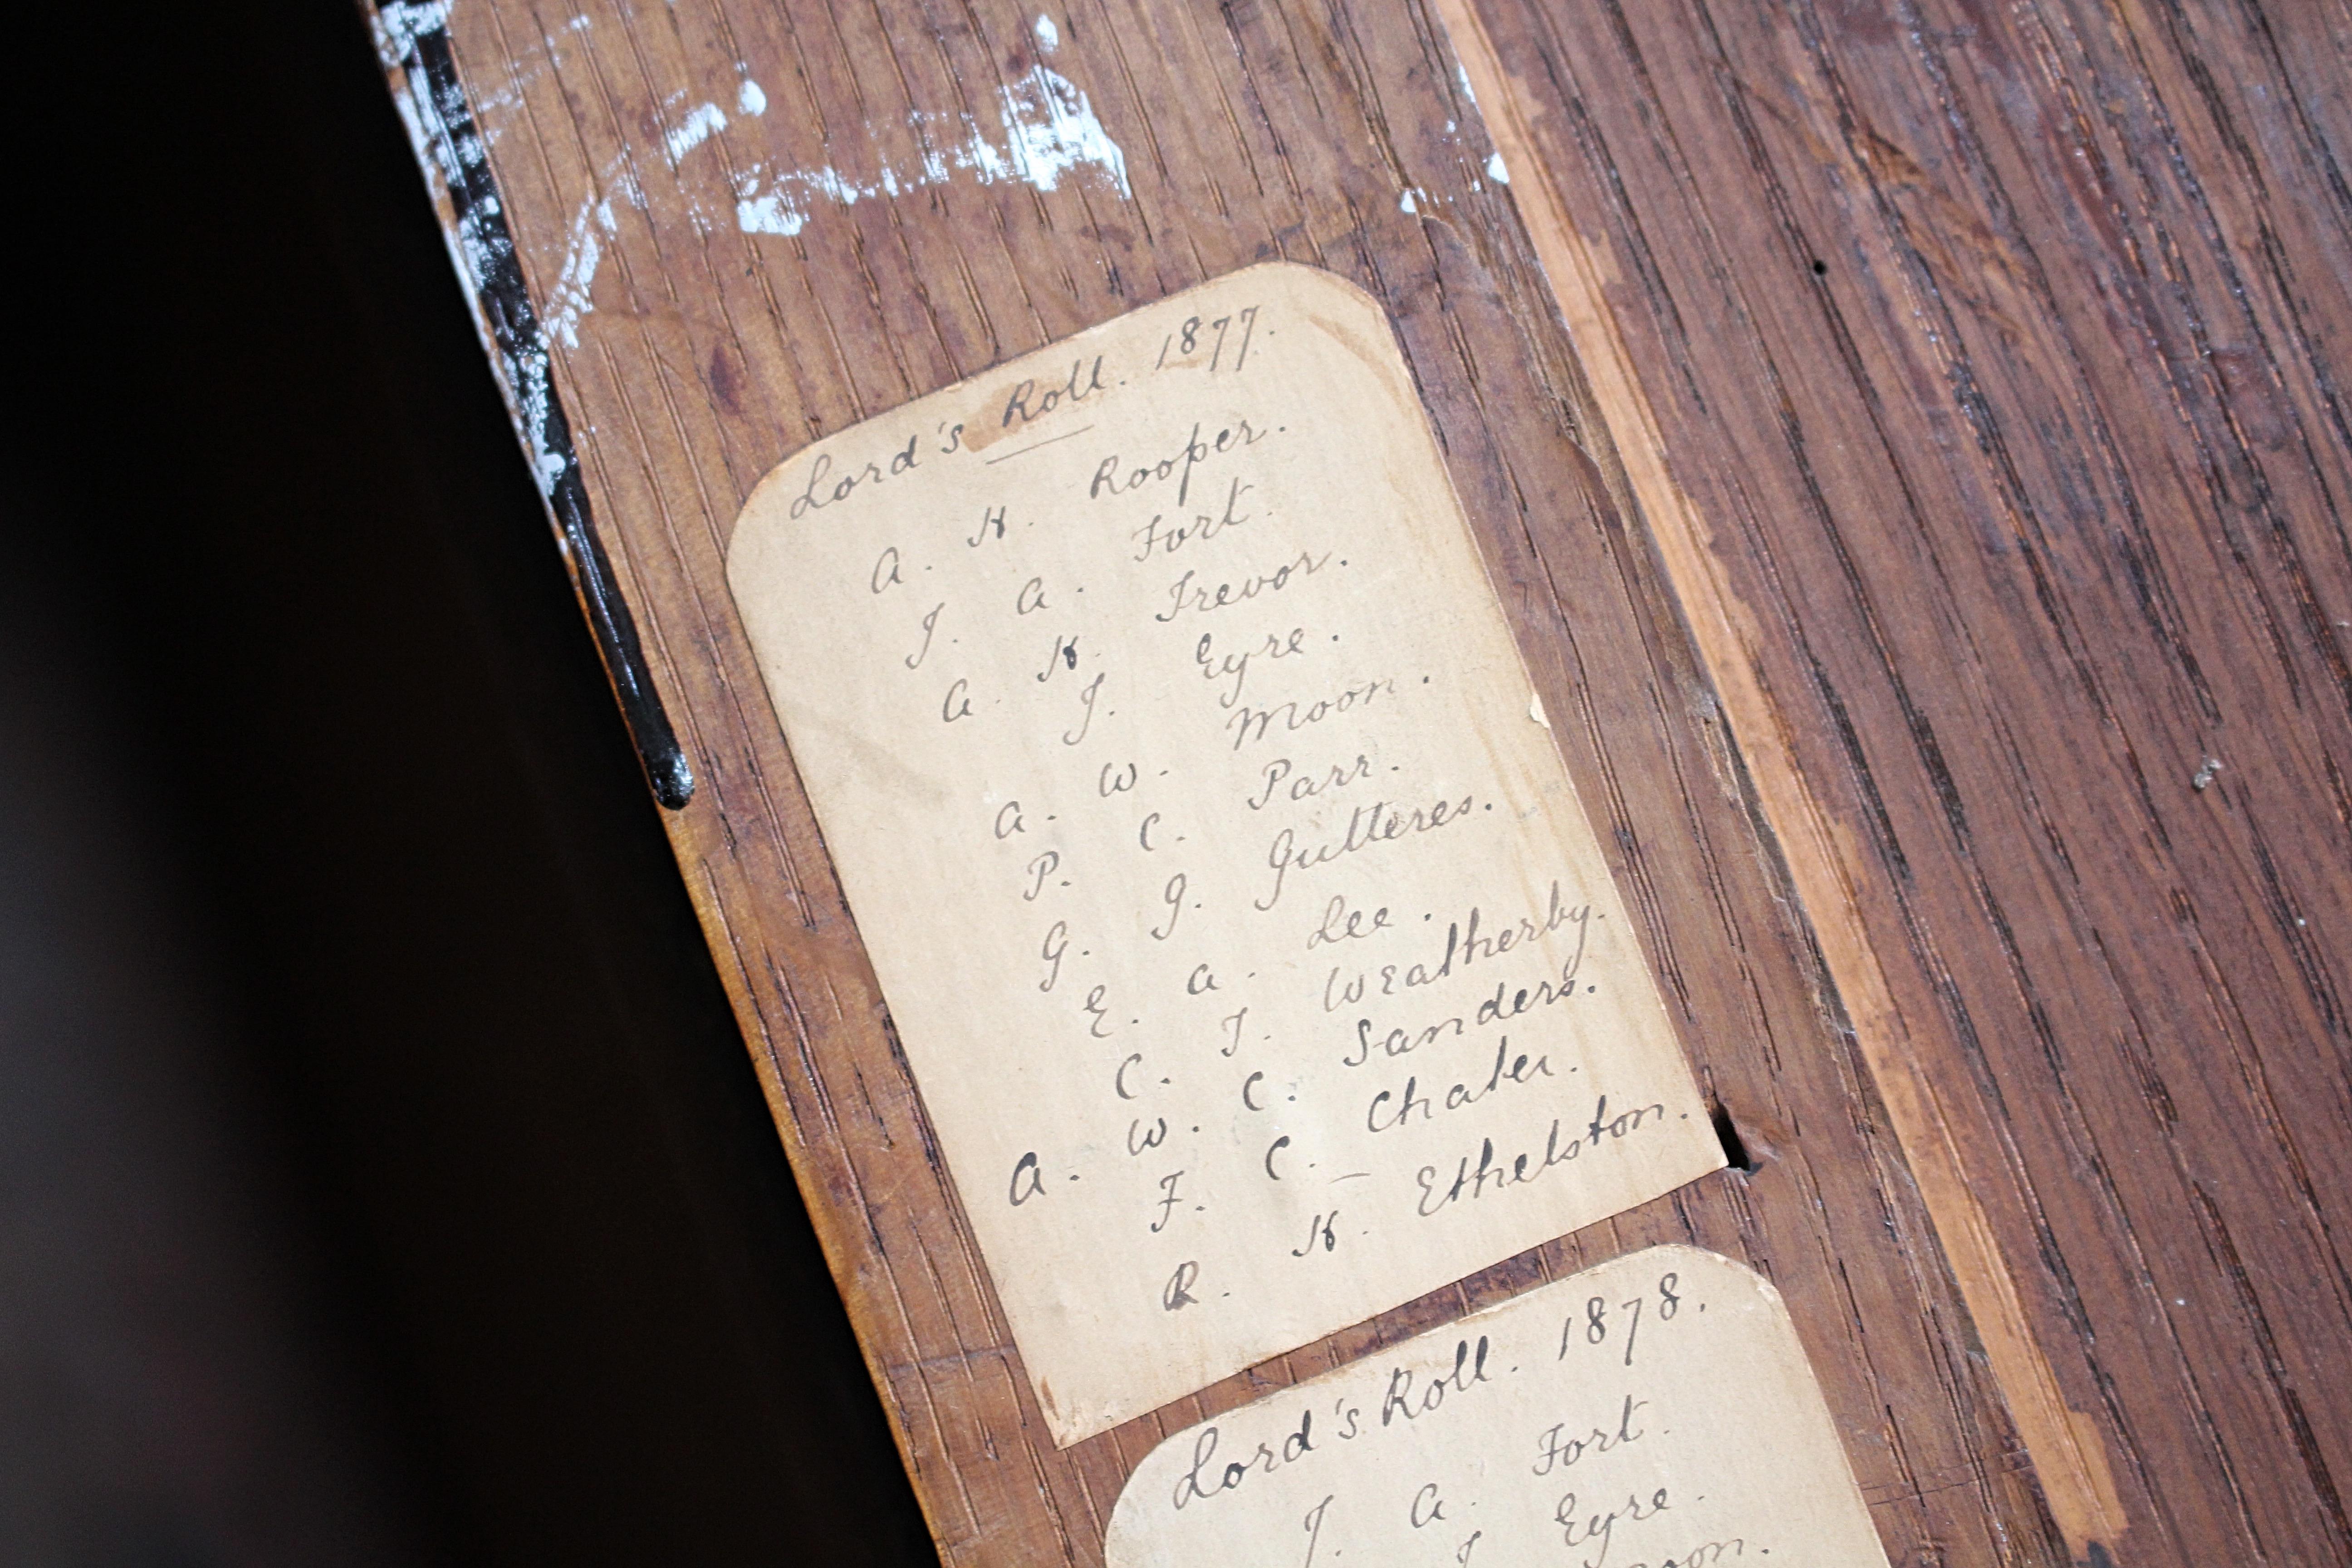 Lord's Roll. 1877.
A. H. Rooper.
J. A. Fort.
A. H. Trevor.
J. Eyre.
A. W. Moon.
P. C. Parr.
G. G. Gutteres.
E. A. Lee.
C. T. Weatherby.
A. W. C. Sanders.
F. C. Chater.
R. H. Ethelston.
Lord's Roll. 1878.
J. A. Fort.
J Eyre.